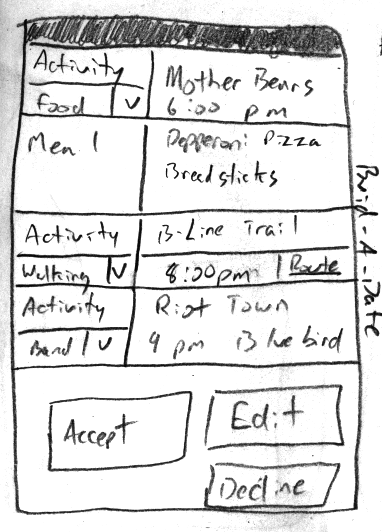 Activity
Food V
Mother Bears
6:00 pm
Meal
Pepperoni Pizza
Breadsticks
Activity
Walking V
B-Line Trail
8:00pm Route
Activity
Band V
Riot Town
9 pm Bluebird
Accept
Edit
Decline
Buid-A-Date